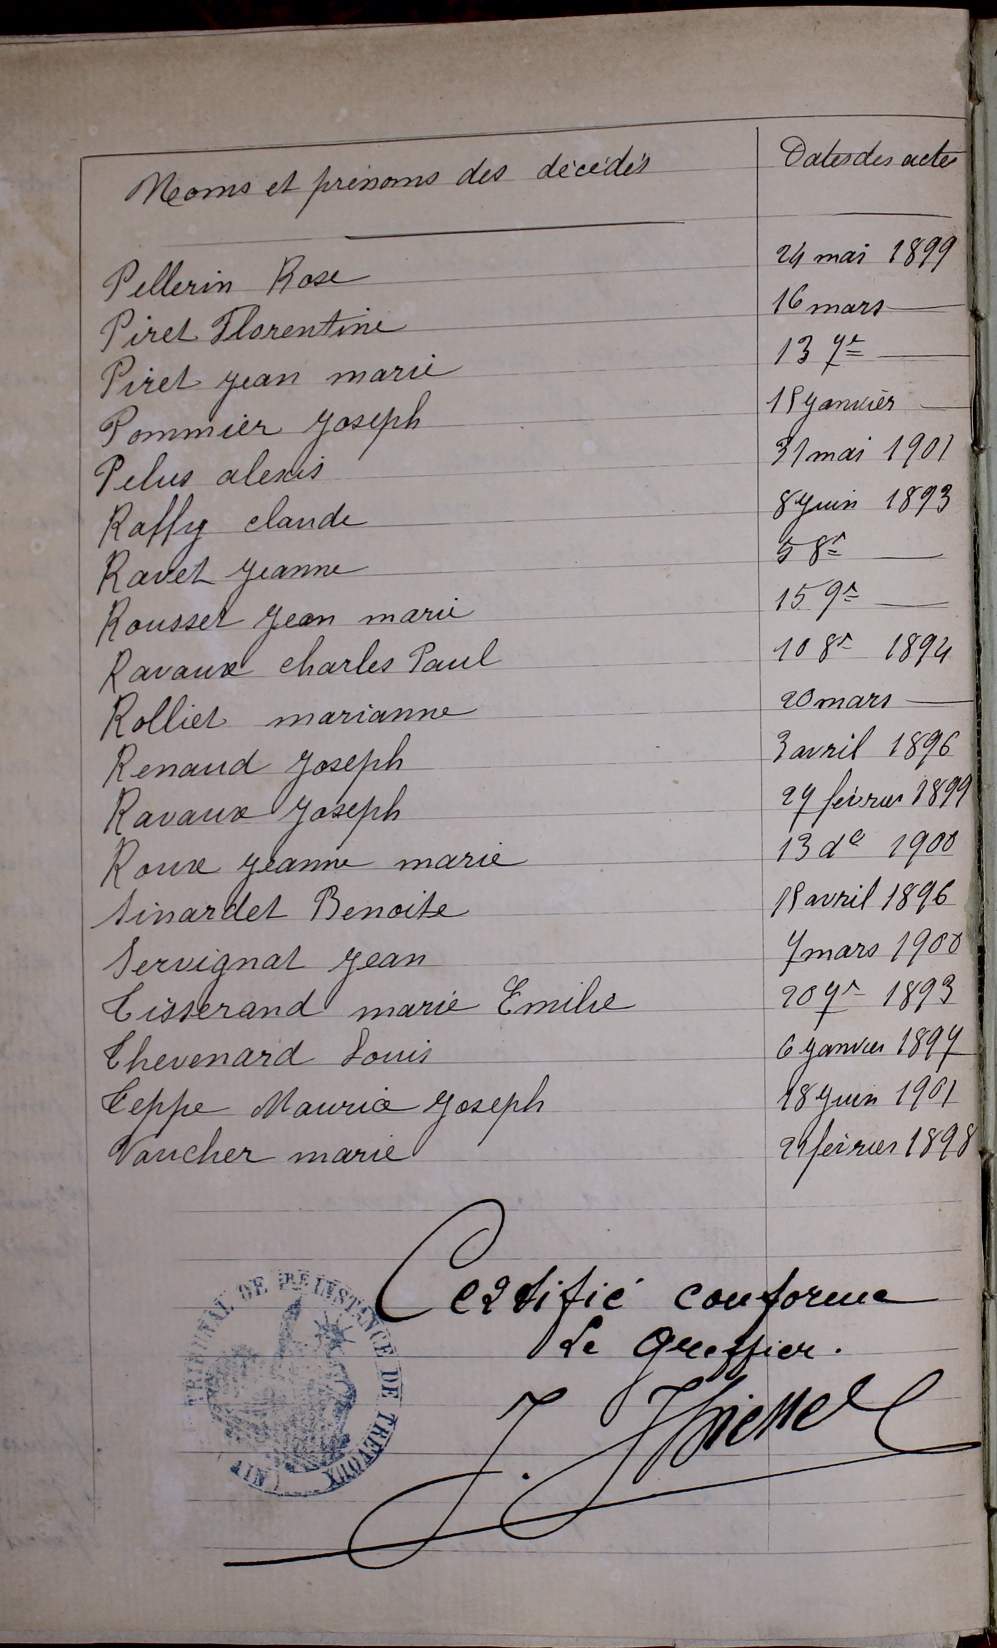 Noms et prénoms des décédés Dates des actes
Pellerin Rose 24 mai 1899
Piret Florentine 16 mars —
Piret Jean marie 13 7re —
Pommier Joseph 15 Janvier —
Pelus alexis 31 mai 1901
Raffy claude 8 Juin 1893
Ravet Jeanne 5 8re —
Rousset Jean marie 15 9re —
Ravaux charles Paul 10 8re 1894
Rolliet marianne 20 mars —
Renaud Joseph 3 avril 1896
Ravaux Joseph 27 février 1899
Roux Jeanne marie 13 de 1900
Sinardet Benoite 15 avril 1896
Servignat Jean 7 mars 1900
Tisserand marie Emilie 20 7re 1893
Thevenard Louis 6 Janvier 1897
Teppe Maurice Joseph 18 Juin 1901
Vaucher marie février 1898
Certifié conforme
Le Greffier.
J.
TRIBUNAL DE 1RE INSTANCE DE TREVOUX (AIN)